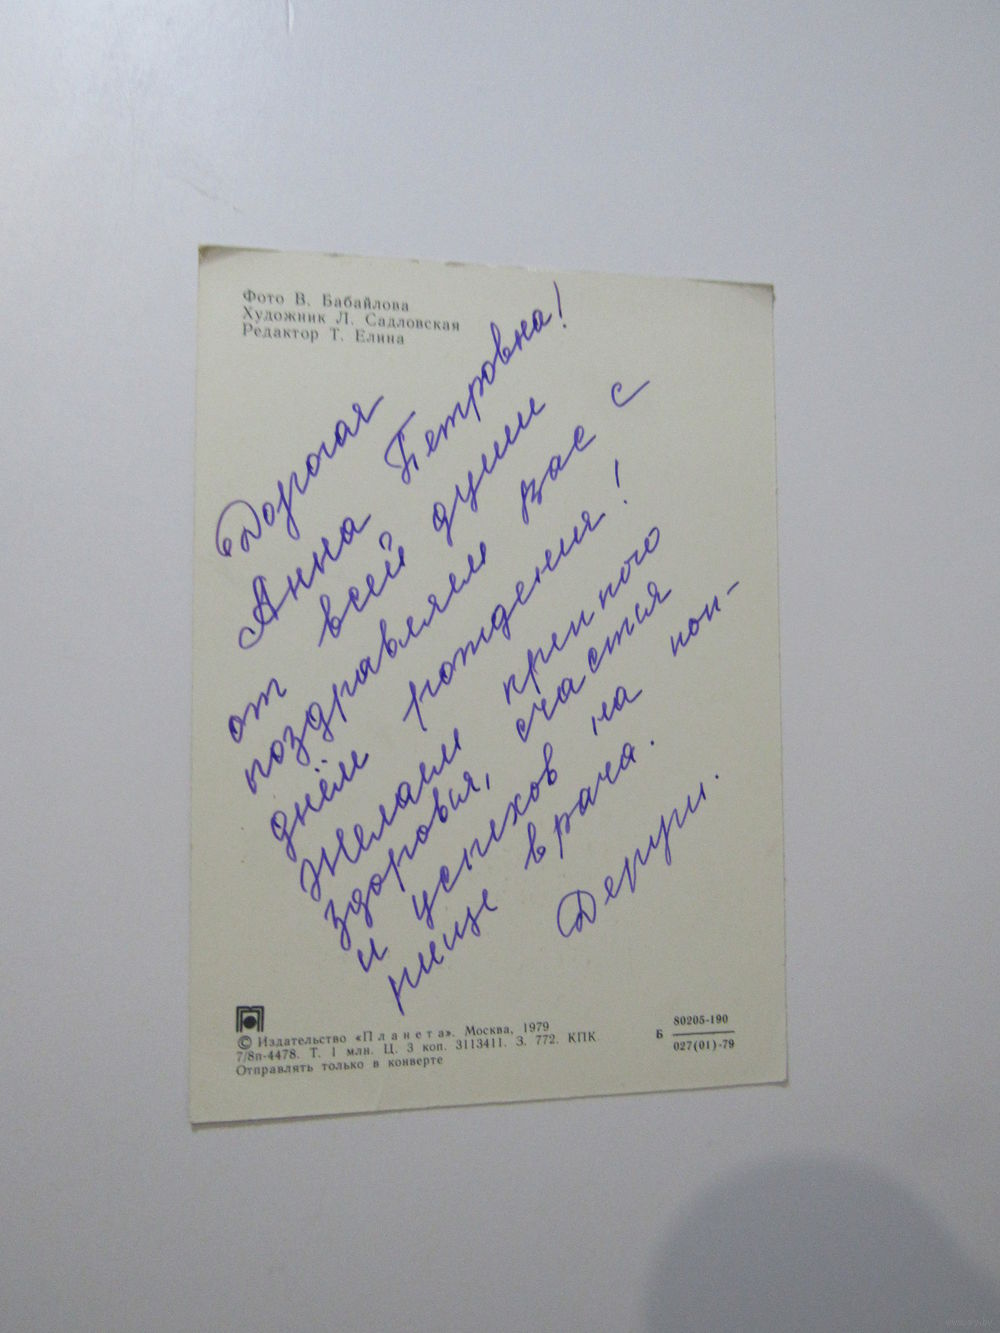 Фото В. Бабайлова
Художник Л. Садловская
Редактор Т. Елина
Дорогая
Анна Петровна!
от всей души
поздравляем вас с
днём рождения!
Желаем крепкого
здоровья, счастья
и успехов на поп-
рище врача.
© Издательство «Планета». Москва, 1979
7/8п-4478. Т. 1 млн. Ц. 3 коп. 3113411. З. 772. КПК
Отправлять только в конверте
Б 80205-190
027(01)-79